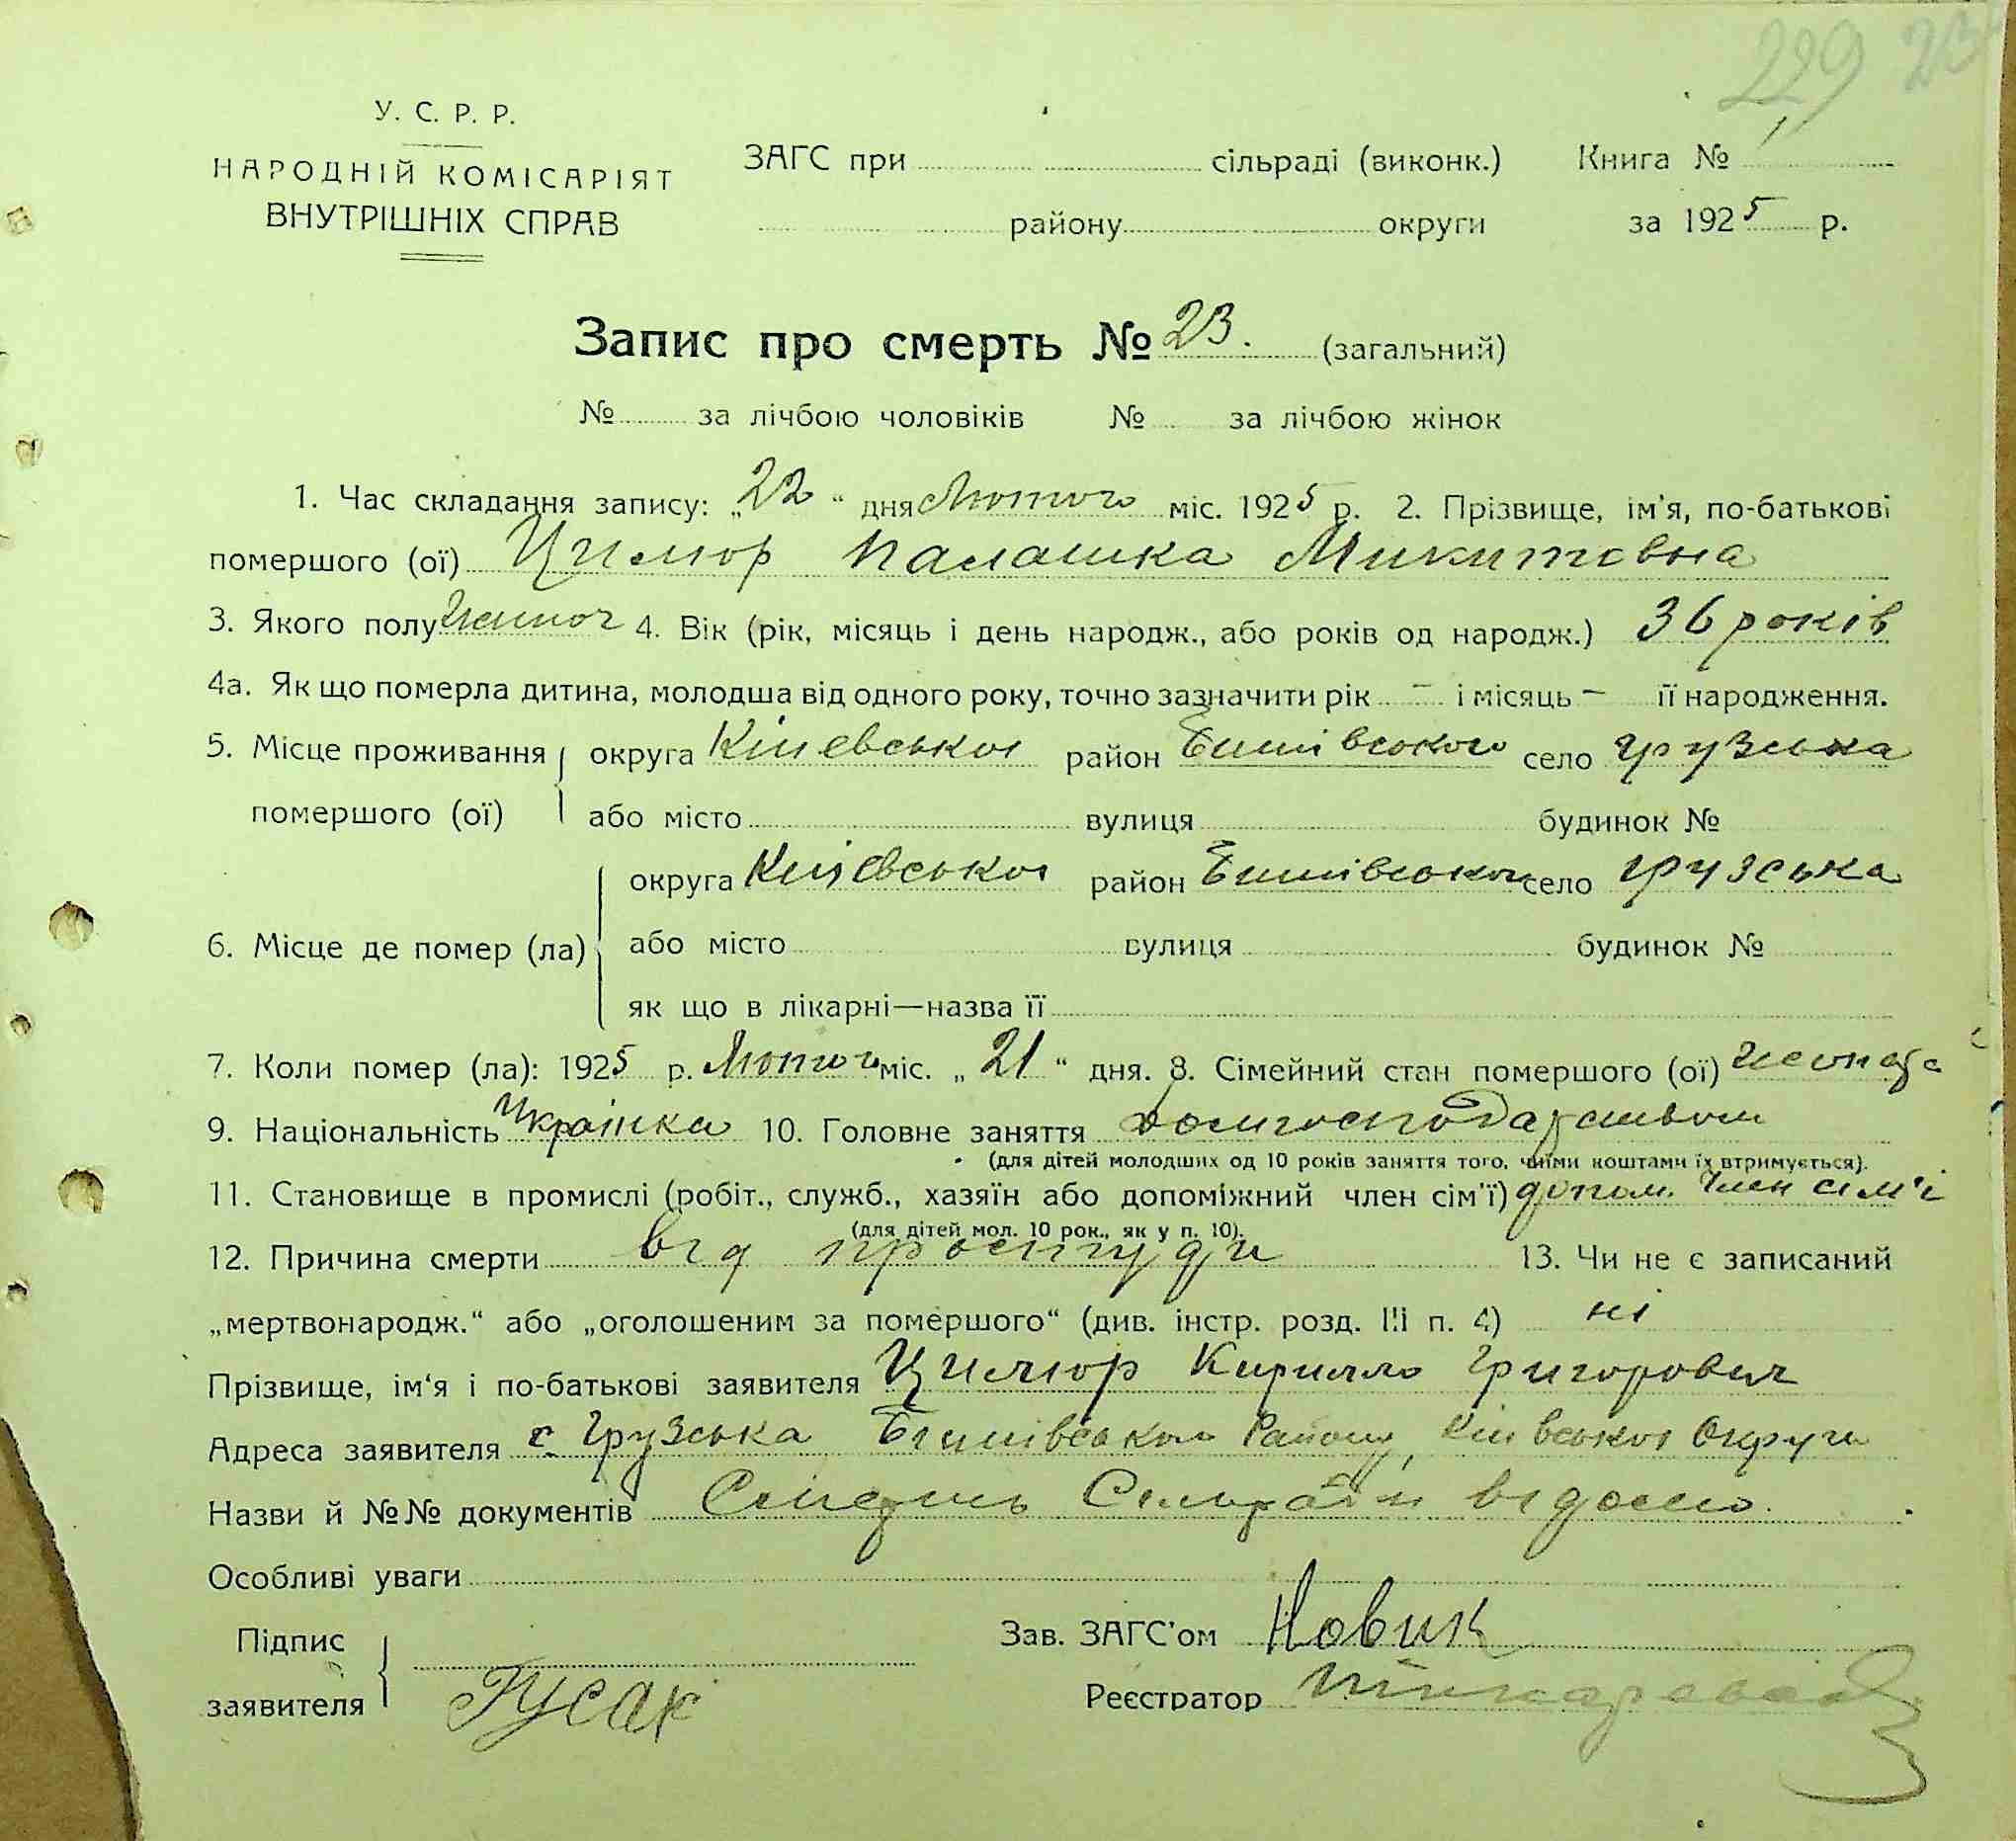 229
У. С. Р. Р.
НАРОДНІЙ КОМІСАРІЯТ
ВНУТРІШНІХ СПРАВ
ЗАГС при сільраді (виконк.) Книга № 1
району округи за 1925 р.
Запис про смерть № 23. (загальний)
№ за лічбою чоловіків № за лічбою жінок
1. Час складання запису: „22“ дня Лютого міс. 1925 р. 2. Прізвище, ім'я, по-батькові
помершого (ої) Цимюр Палашка Микитовна
3. Якого полу 4. Вік (рік, місяць і день народж., або років од народж.) 36 років
4а. Як що померла дитина, молодша від одного року, точно зазначити рік – і місяць – її народження.
5. Місце проживання округа Київської район село Грузська
помершого (ої) або місто вулиця будинок №
округа Київської район село Грузська
6. Місце де помер (ла) або місто вулиця будинок №
як що в лікарні—назва її
7. Коли помер (ла): 1925 р. Лютого міс. „21“ дня. 8. Сімейний стан помершого (ої)
9. Національність Українка 10. Головне заняття домгосподарством
(для дітей молодших од 10 років заняття того, чиїми коштами їх втримується).
11. Становище в промислі (робіт., служб., хазяїн або допоміжний член сім'ї) допом. член сім'ї
(для дітей мол. 10 рок., як у п. 10).
12. Причина смерти від простуди 13. Чи не є записаний
„мертвонародж.“ або „оголошеним за помершого“ (див. інстр. розд. III п. 4) ні
Прізвище, ім'я і по-батькові заявителя Цимюр Кирилло Григорович
Адреса заявителя с. Грузська Району Київської Округи
Назви й №№ документів відомо.
Особливі уваги
Підпис Зав. ЗАГС'ом Новик
заявителя Гусак Реєстратор